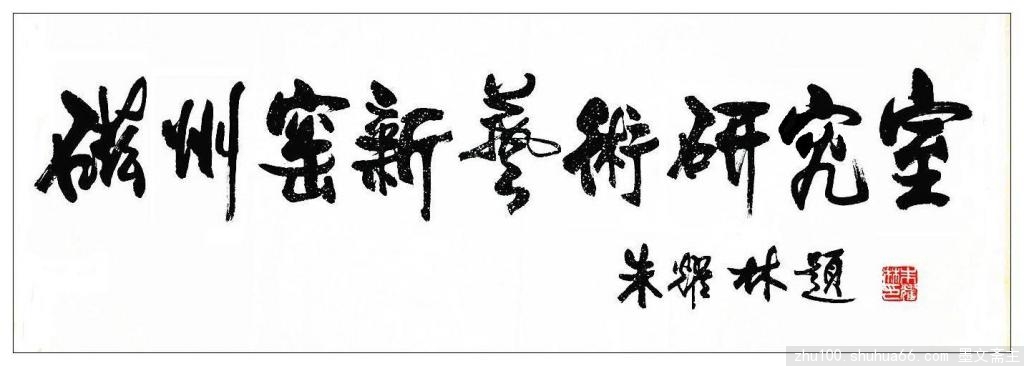 磁州窑新藝術研究室
朱耀林題
朱耀林印
zhu100.shuhua66.com 墨文斋主